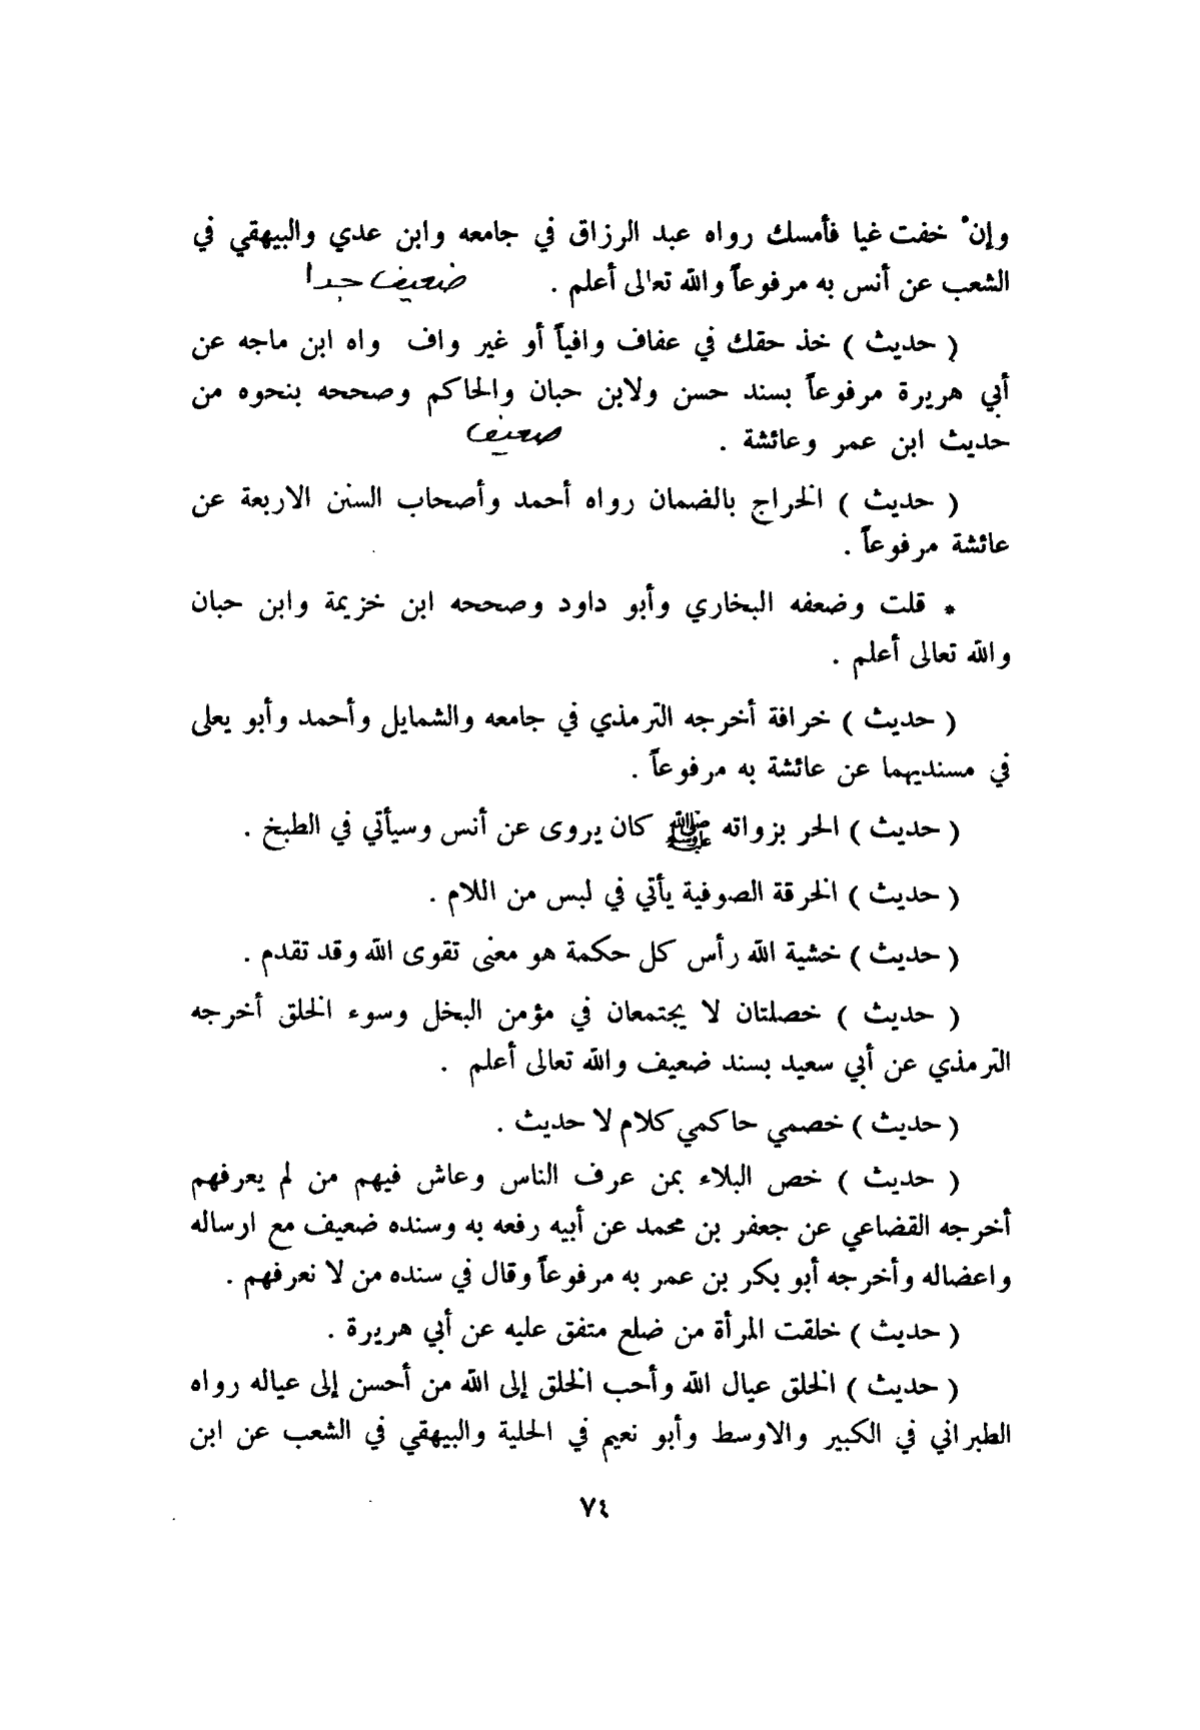 وإنْ خفت غيا فأمسك رواه عبد الرزاق في جامعه وابن عدي والبيهقي في
الشعب عن أنس به مرفوعاً والله تعالى أعلم . ضعيف جدا
( حديث ) خذ حقك في عفاف وافياً أو غير واف واه ابن ماجه عن
أبي هريرة مرفوعاً بسند حسن ولابن حبان والحاكم وصححه بنحوه من
حديث ابن عمر وعائشة . ضعيف
( حديث ) الخراج بالضمان رواه أحمد وأصحاب السنن الاربعة عن
عائشة مرفوعاً .
* قلت وضعفه البخاري وأبو داود وصححه ابن خزيمة وابن حبان
والله تعالى أعلم .
( حديث ) خرافة أخرجه الترمذي في جامعه والشمايل وأحمد وأبو يعلى
في مسنديهما عن عائشة به مرفوعاً .
( حديث ) الحر بزواته ﷺ كان يروى عن أنس وسيأتي في الطبخ .
( حديث ) الخرقة الصوفية يأتي في لبس من اللام .
( حديث ) خشية الله رأس كل حكمة هو معنى تقوى الله وقد تقدم .
( حديث ) خصلتان لا يجتمعان في مؤمن البخل وسوء الخلق أخرجه
الترمذي عن أبي سعيد بسند ضعيف والله تعالى أعلم .
( حديث ) خصمي حاكمي كلام لا حديث .
( حديث ) خص البلاء بمن عرف الناس وعاش فيهم من لم يعرفهم
أخرجه القضاعي عن جعفر بن محمد عن أبيه رفعه به وسنده ضعيف مع ارساله
واعضاله وأخرجه أبو بكر بن عمر به مرفوعاً وقال في سنده من لا نعرفهم .
( حديث ) خلقت المرأة من ضلع متفق عليه عن أبي هريرة .
( حديث ) الخلق عيال الله وأحب الخلق إلى الله من أحسن إلى عياله رواه
الطبراني في الكبير والاوسط وأبو نعيم في الحلية والبيهقي في الشعب عن ابن
٧٤